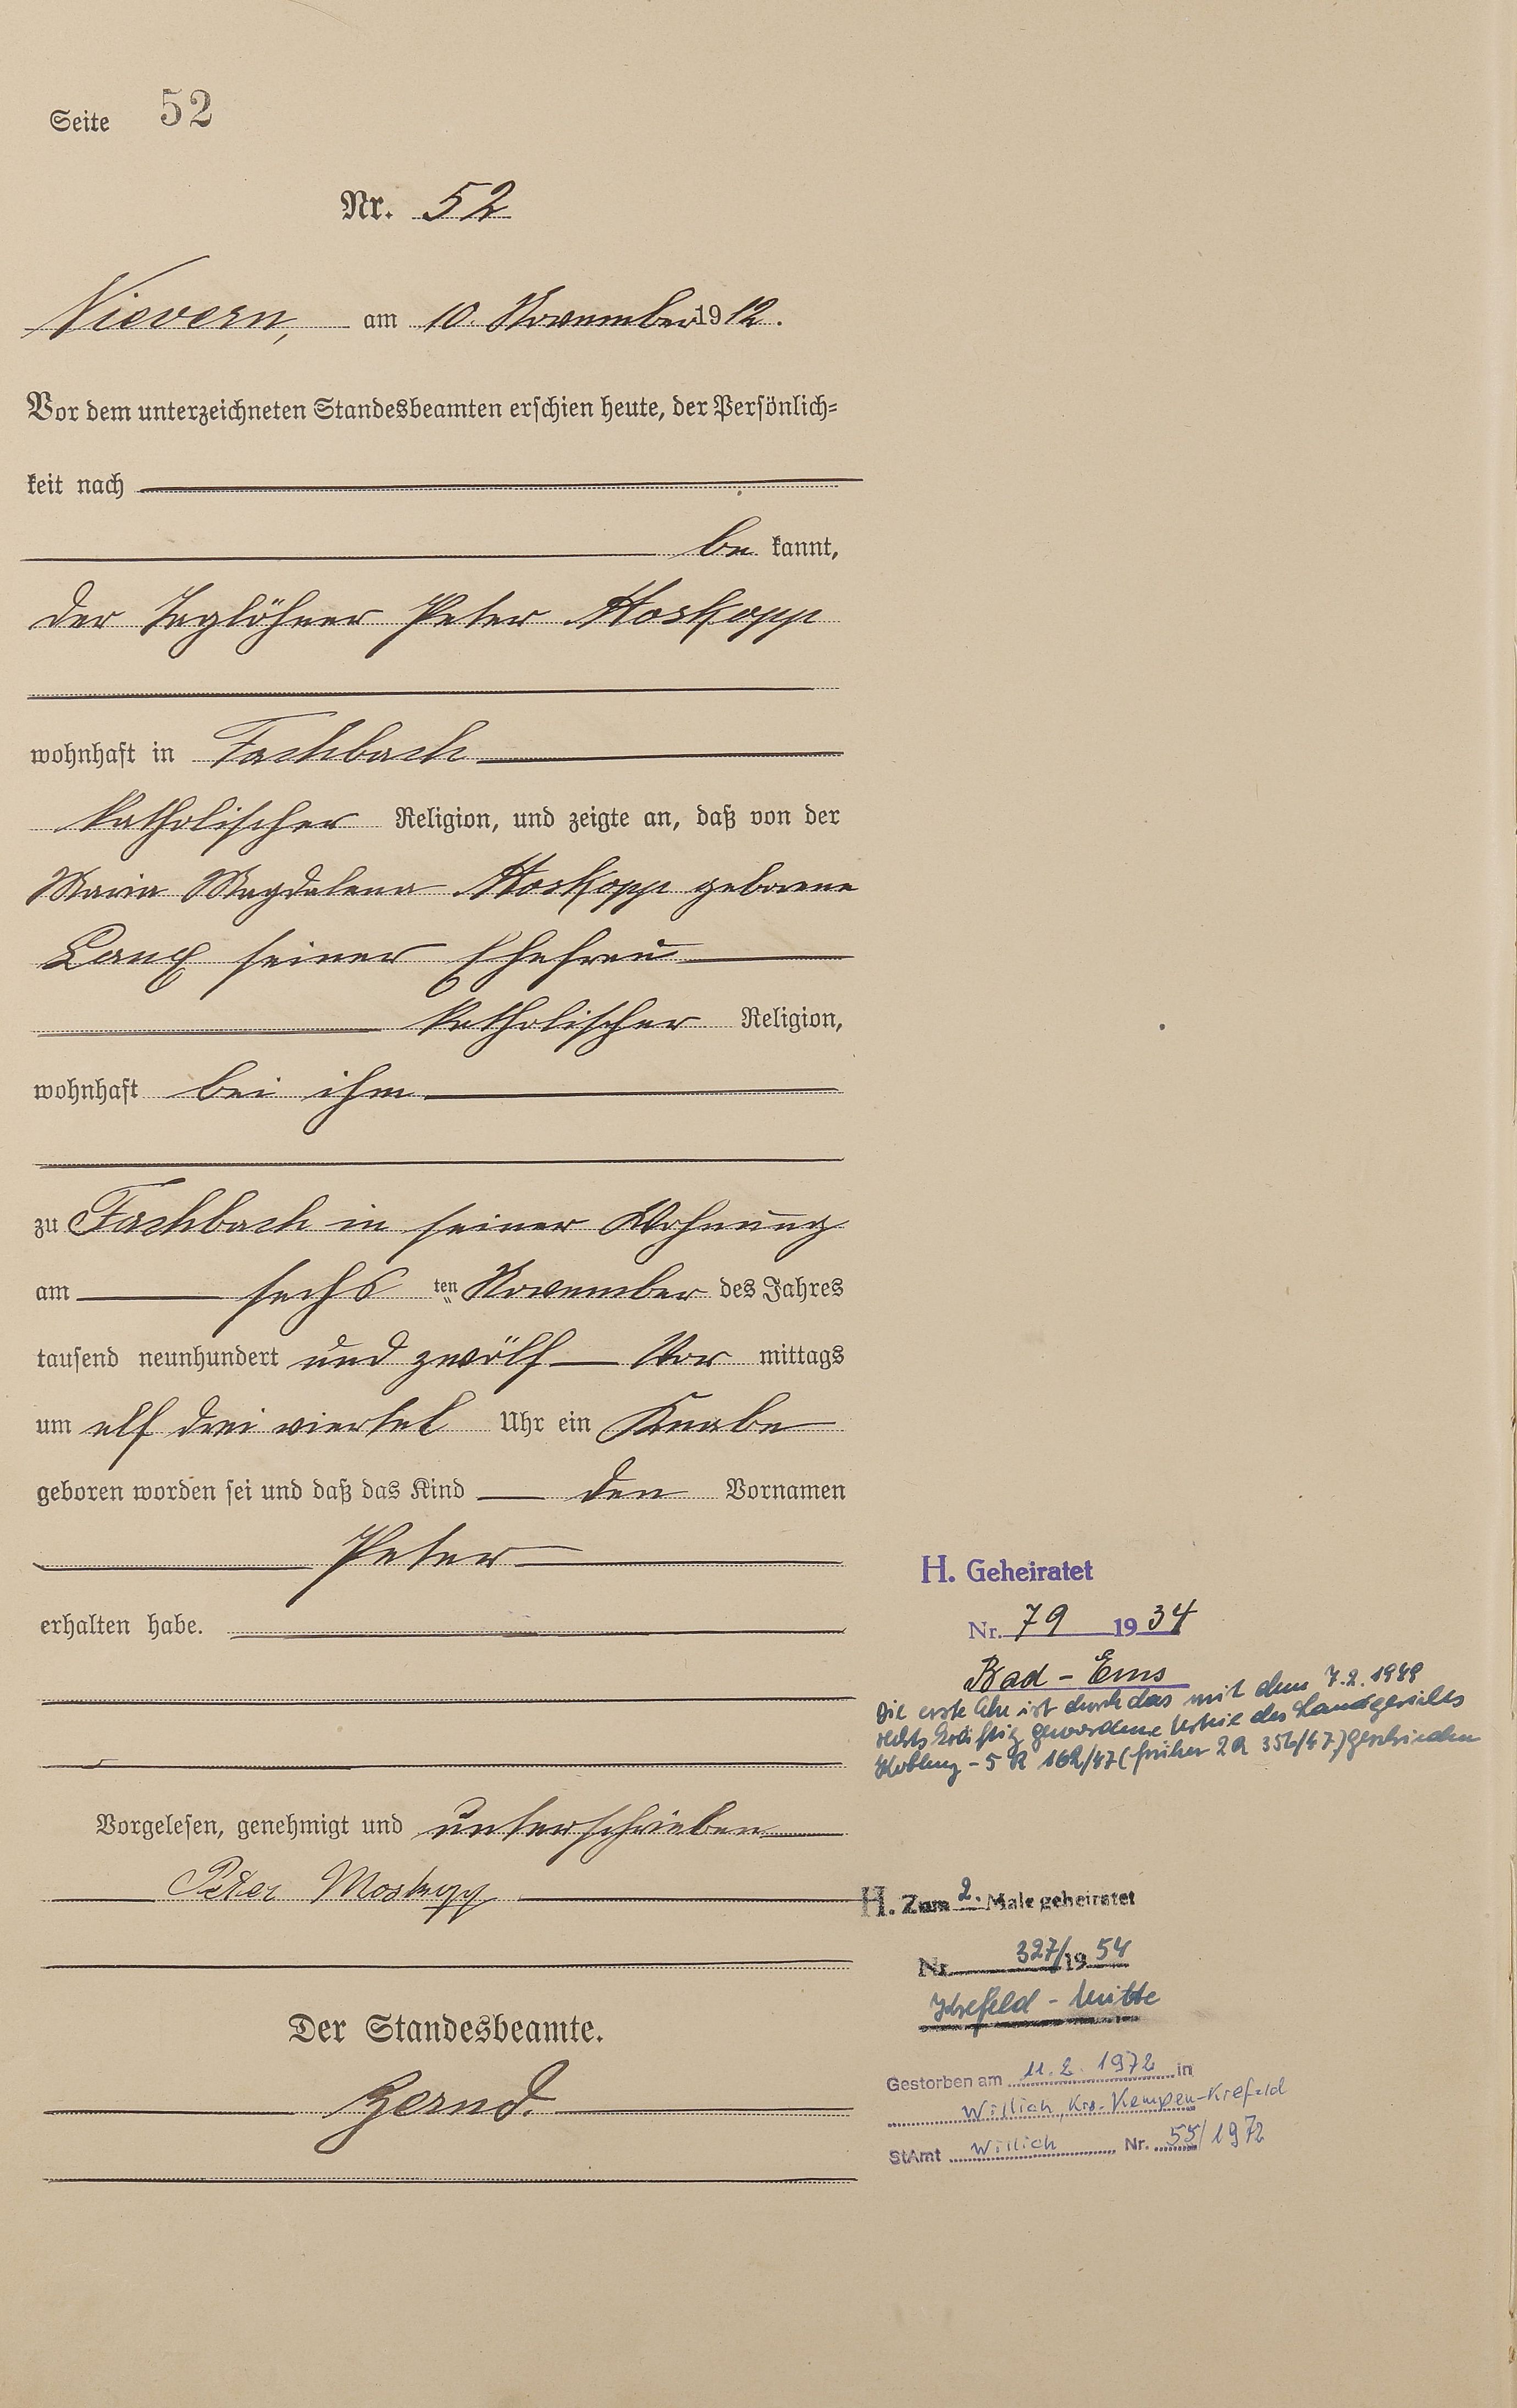 Seite 52
Nr. 52
Nievern, am 10. November 1912.
Vor dem unterzeichneten Standesbeamten erschien heute, der Persönlich-
keit nach
be kannt,
der Taglöhner Peter Moskopp
wohnhaft in Fachbach
katholischer Religion, und zeigte an, daß von der
Maria Magdalena Moskopp geborene
seiner Ehefrau
katholischer Religion,
wohnhaft bei ihm
zu Fachbach in seiner Wohnung
am sechs ten November des Jahres
tausend neunhundert und zwölf Vor mittags
um elf drei viertel Uhr ein Knabe
geboren worden sei und daß das Kind den Vornamen
Peter
erhalten habe.
Vorgelesen, genehmigt und unterschrieben
Peter Moskopp
Der Standesbeamte.
H. Geheiratet
Nr. 79 1934
Bad-Ems
Die erste Ehe ist durch das mit dem 7.2.1949
rechtskräftig gewordene Urteil des Landgerichts
Koblenz - 5 R 162/47 (früher 2 R 356/47) geschieden
H. Zum 2. Male geheiratet
Nr. 327/1954
Krefeld-Mitte
Gestorben am 11.2.1972 in
Willich, Krs. Kempen-Krefeld
StAmt Willich Nr. 55/1972